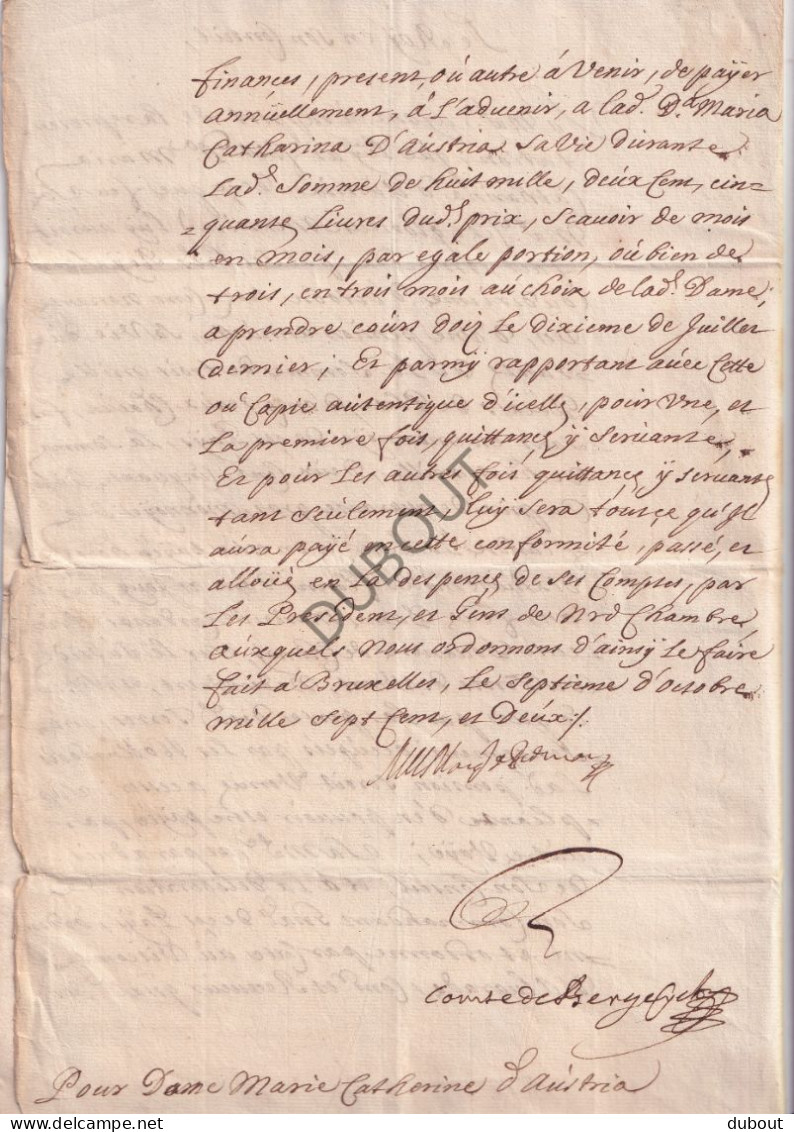 finances, present, où autre à Venir, de payer
annüellement, à L'advenir, a lad. D.ᵃ Maria
Catharina D'Aústria sa Vie dúrante
Lad.ᵉ Somme de húit mille, deúx Cent, cin=
=quante Livres dud.ᵗ prix, scavoir de mois
en mois, par egale portion, oú bien de
trois, en trois mois aú choix de lad.ᵉ Dame,
a prendre coúrs doiz Le dixieme de Juillet
dernier; Et parmÿ rapportant aúec Cette
oú Copie aútentiqúe d'icelle, poúr Vne, et
La premiere fois, qúittance ÿ serúante,
Et poúr Les aútres fois qúittance ÿ serúante
tant seúlement, lúÿ sera toút ce qú'Il
aúra payé en cette conformité, passé, et
alloúé en La despence de ses Comptes, par
Les President, et Gens de Nrd Chambre
aúxqúels Noús ordonnons d'ainsÿ Le faire
fait à Brúxelles, Le septieme d'octobre
mille sept Cent, et Deúx /.
Comte de Bergeyck
Poúr Dame Marie Catherine d'Aústria
DUBOUT
dubout
delcampe.net